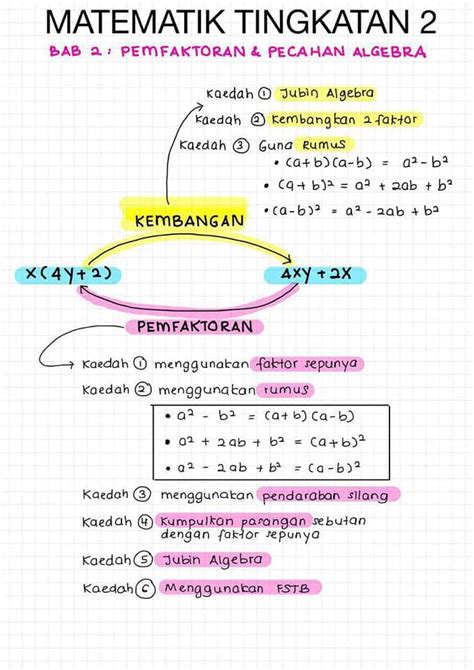 MATEMATIK TINGKATAN 2
BAB 2 : PEMFAKTORAN & PECAHAN ALGEBRA
Kaedah ① Jubin Algebra
Kaedah ② Kembangkan 2 faktor
Kaedah ③ Guna Rumus
• (a+b)(a-b) = a² - b²
• (a + b)² = a² + 2ab + b²
• (a-b)² = a² - 2ab + b²
KEMBANGAN
x(4y+2)
4xy + 2x
PEMFAKTORAN
Kaedah ① menggunakan faktor sepunya
Kaedah ② menggunakan rumus
• a² - b² = (a+b)(a-b)
• a² + 2ab + b² = (a+b)²
• a² - 2ab + b² = (a-b)²
Kaedah ③ menggunakan pendaraban silang
Kaedah ④ Kumpulkan pasangan sebutan
dengan faktor sepunya
Kaedah ⑤ Jubin Algebra
Kaedah ⑥ Menggunakan FSTB